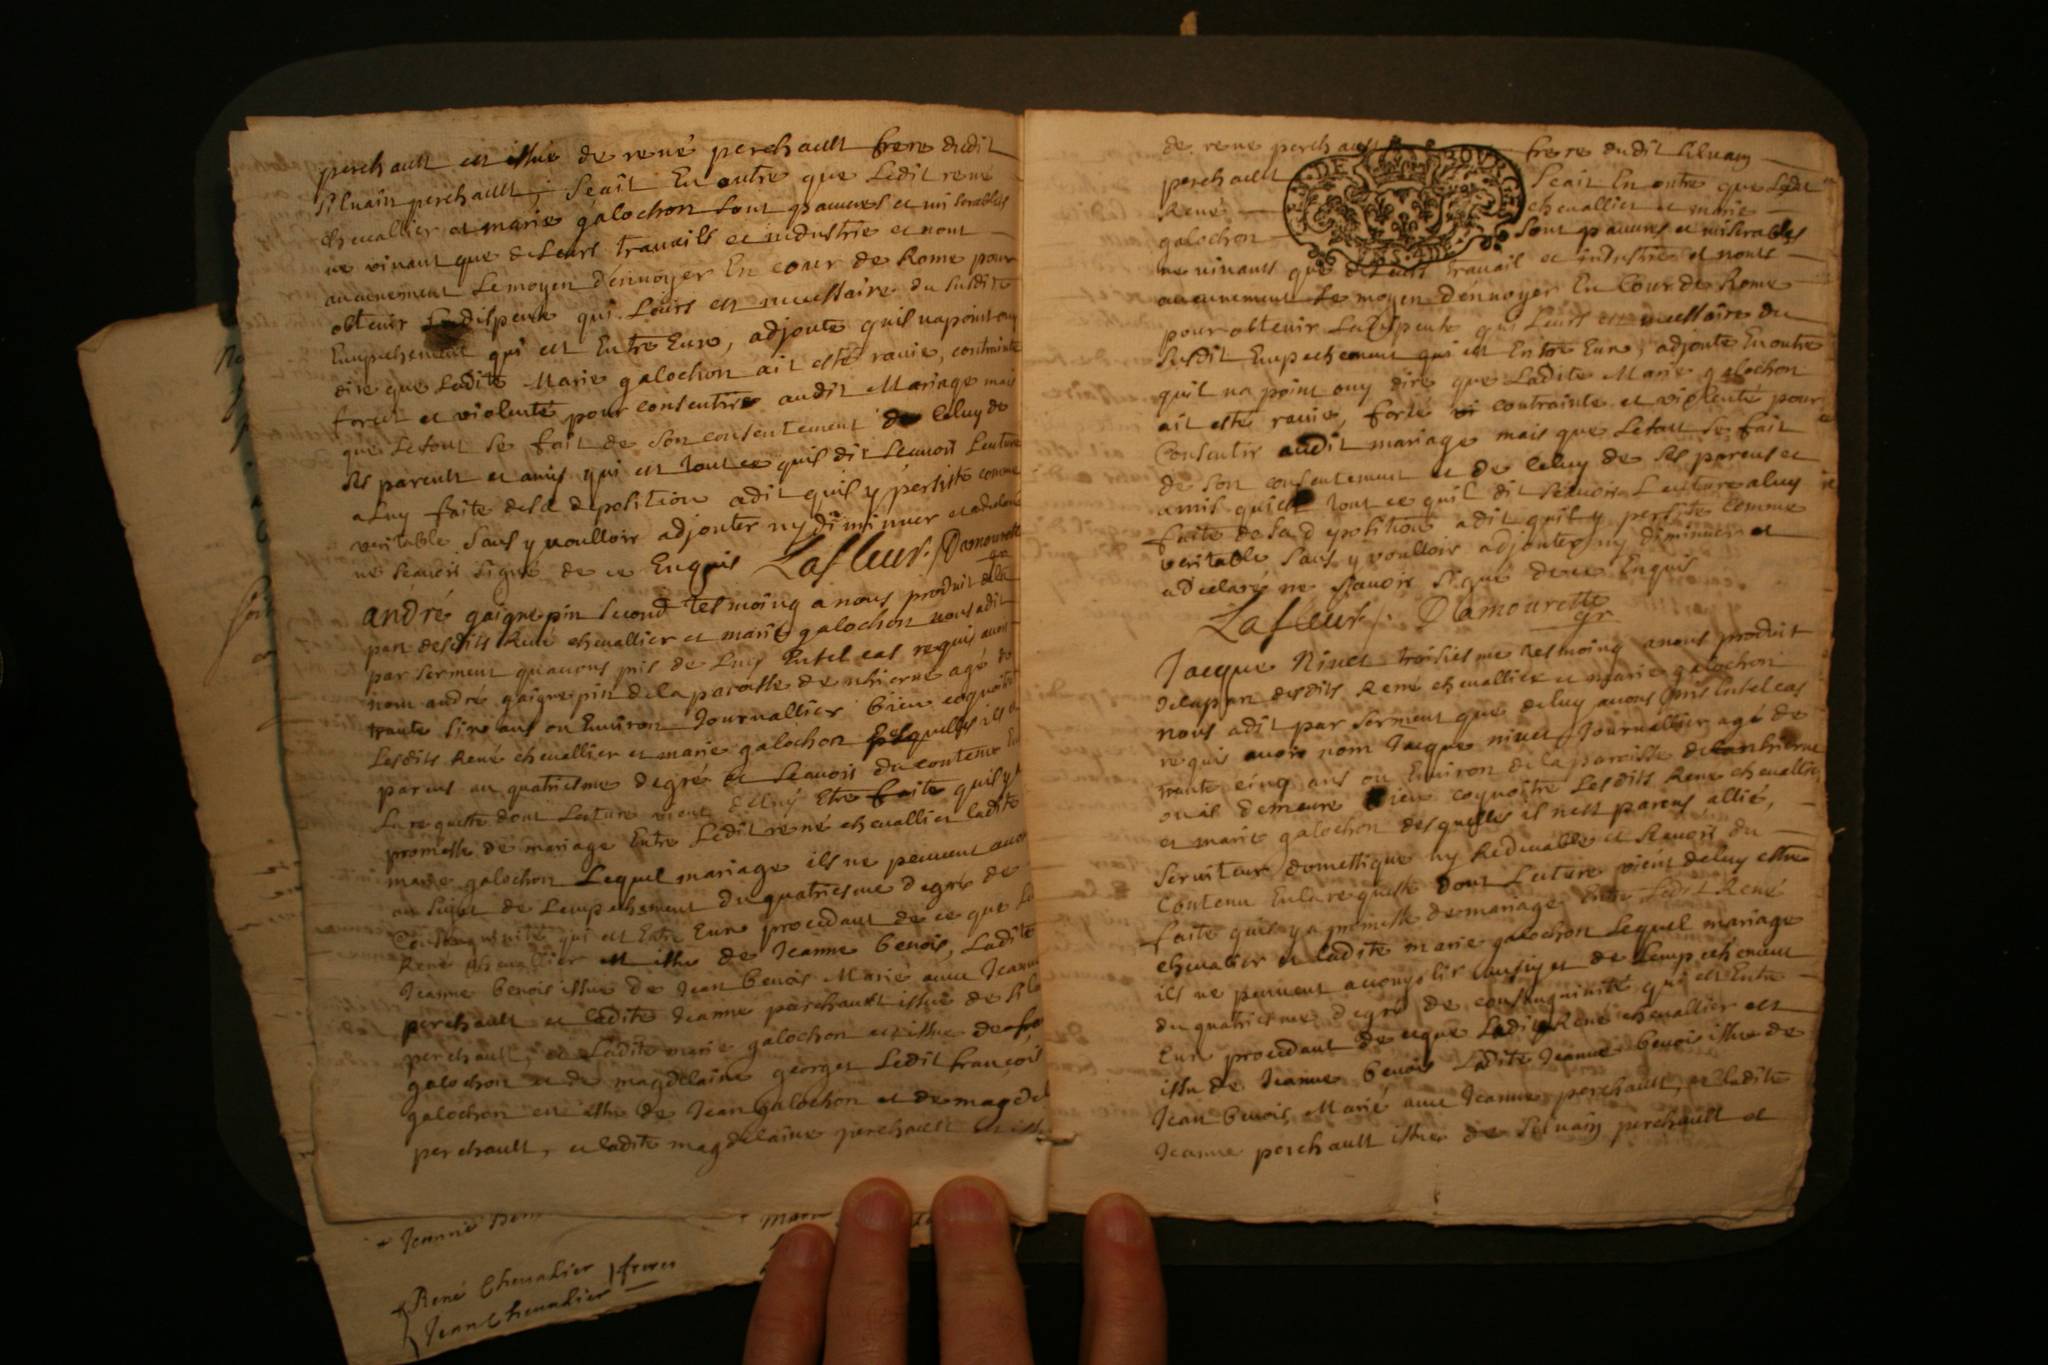 perchault est issue de rené perchault frere dudit
silvain perchault, scait En outre que Ledit rené
chevallier et marie galochon sont pauvres et miserables
ne vivant que de Leurs travails et industrie et nont
aucunement Le moyen d'envoyer En cour de Rome pour
obtenir La dispence qui Leurs est necessaire du susdit
Empechement qui est Entre Eux, adjoute quil na point ouy
dire que Ladite Marie galochon ait esté ravie, contrainte
forcée et violenté pour consentire audit Mariage mais
que Le tout se fait de son consentement de celuy de
ses parents et amis qui est tout ce quil dit scavoir Lecture
a Luy faite de sa deposition a dit quil y persiste comme
veritable sans y voulloir adjouter ny diminuer et a declaré
ne scavoir signé de ce Enquis Lafleur. Damourette
gr
andré gaignepin second tesmoing a nous produit de la
part desdits René chevallier et marie galochon nous a dit
par serment qu'avons pris de Luy En tel cas requis avoir
nom andré gaignepin de la paroisse de nherne agé de
trante six ans ou Environ Journallier bien cognoitre
Lesdits René chevallier et marie galochon desquelles il
parens au quatriesme degré et scavoir du contenu En
La requeste dont Lecture vient de Luy Etre faite quil y a
promesse de mariage Entre Ledit rené chevallier ladite
marie galochon Lequel mariage ils ne peuvent
au sujet de Lempechement du quatriesme degré de
Consanguinité qui est Entre Eux procedant de ce que Le
René chevallier est issu de Jeanne benois, Ladite
Jeanne benois issue de Jean benois Marié avec Jeanne
perchault et ladite Jeanne perchault issue de
perchault, et Ladite marie galochon est issue de
galochon et de magdelaine georges Ledit françois
galochon est issu de Jean galochon et de
perchault, et ladite magdelaine perchault est
Jeanne
René Chevalier } freres
Jean Chevalier
de rene perchault frere dudit silvain
perchault Scait En outre que Ledit
René chevallier et marie
galochon sont pauvres et miserables
ne vivants que de Leurs travail et industrie et nonts
aucunement Le moyen d'envoyer En Cour de Rome
pour obtenir La dispente qui Leurs est necessaire du
susdit Empechement qui est Entre Eux, adjoute En outre
quil na point ouy dire que Ladite Marie galochon
ait esté ravie, forcé vi contrainte et violenté pour
Consentir audit mariage mais que Le tout se fait
de son consentement et de celuy de ses parens et
amis qui est tout ce quil dit scavoir Lecture a luy
faite de sa deposition a dit quil y persiste comme
veritable sans y voulloir adjouter ny diminuer et
a declaré ne scavoir signé de ce Enquis
Lafleur. Damourette
gr
Jacque Nivet troisiesme tesmoing a nous produit
de la part desdits René chevallier et marie galochon
nous a dit par serment que de luy avons pris En tel cas
requis avoir nom Jacque nivet Journallier agé de
trante cinq ans ou Environ de la paroisse de nherne
ou il demeure bien cognoitre Lesdits René chevallier
et marie galochon desquelles il nest parens allié,
serviteur domestique ny Redevable et scavoir du
Contenu En la requeste dont Lecture vient de luy estre
faite quil y a promesse de mariage Entre Ledit René
chevalier et ladite marie galochon Lequel mariage
ils ne peuvent acomplir au sujet de Lempechement
du quatriesme degré de consanguinité qui est Entre
Eux procedant de ce que Ledit René chevallier est
issu de Jeanne benois Ladite Jeanne benois issue de
Jean benois, Marié avec Jeanne perchault, et Ladite
Jeanne perchault issue de Silvain perchault et